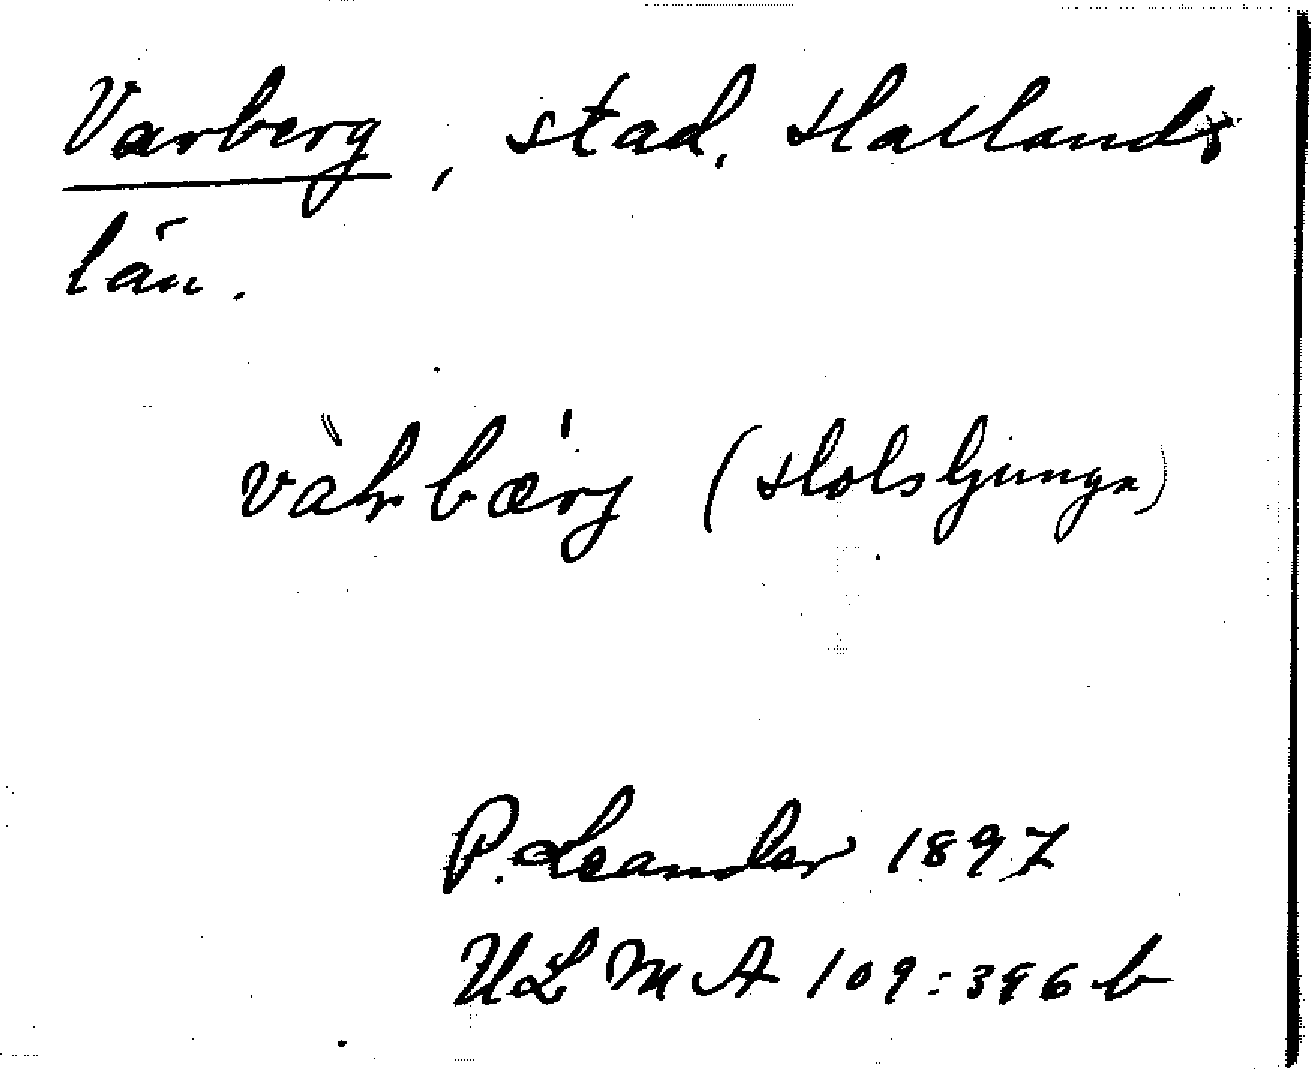 Varberg, stad, Hallands
län.
vàrbærj (Holsljunga)
P. Leander 1897
ULMA 109:396 b